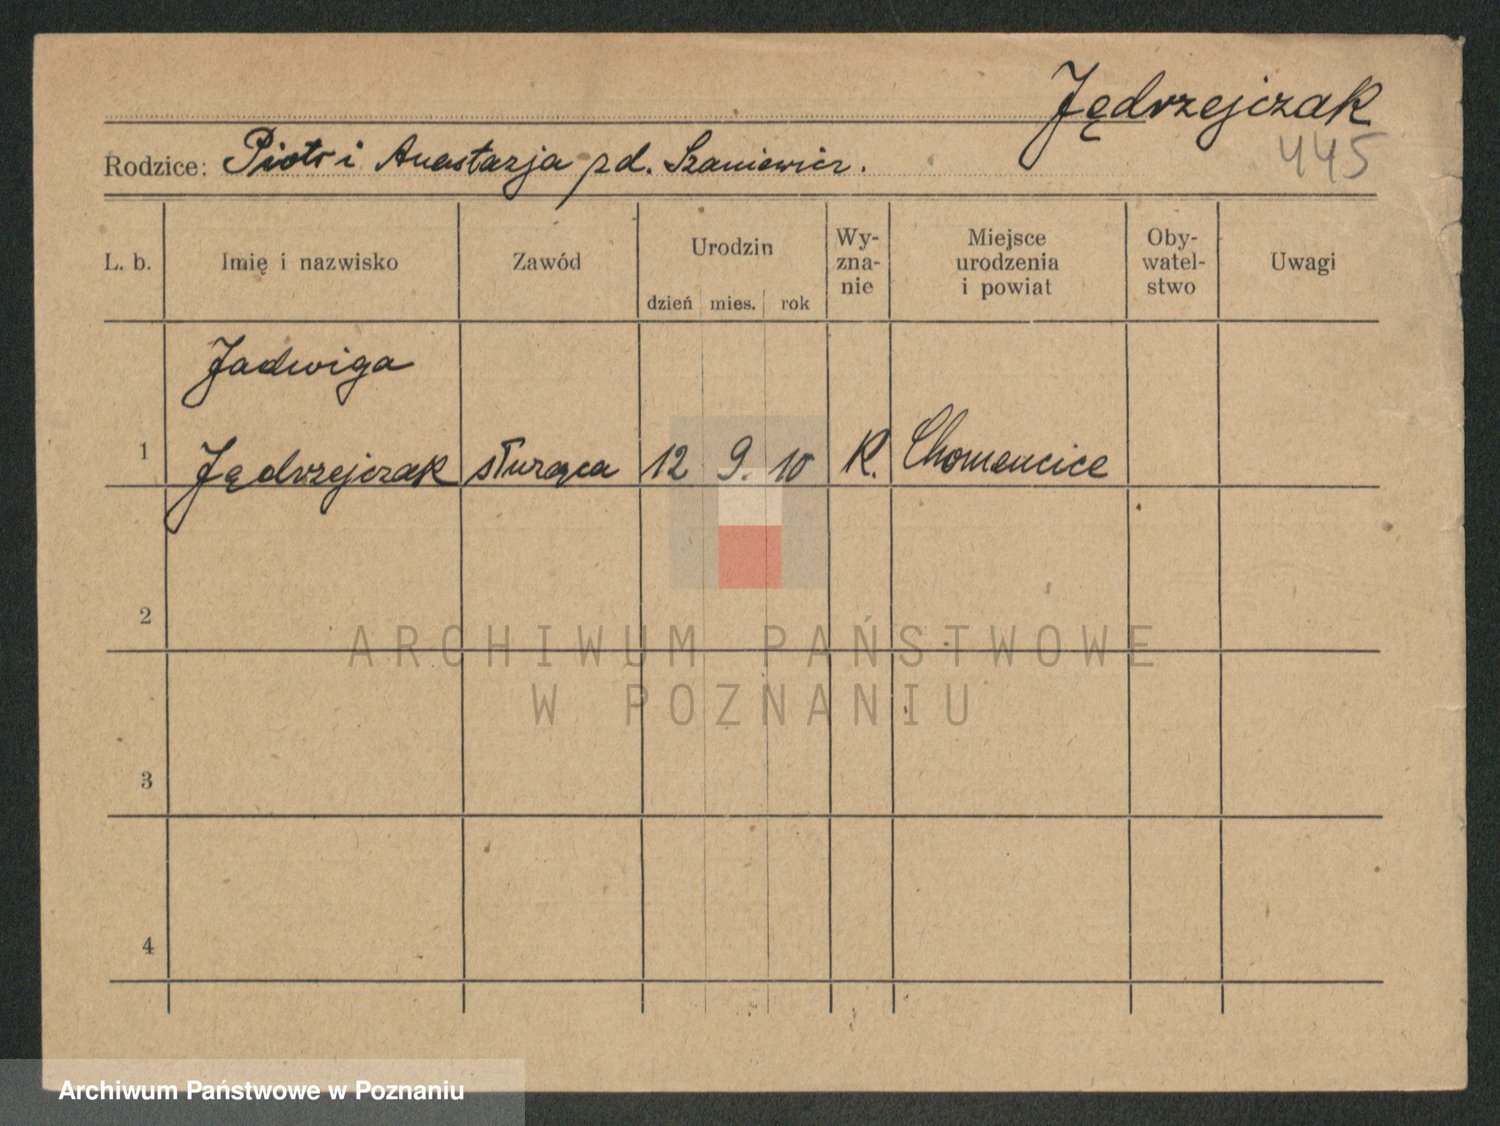 Jędrzejczak
445
Rodzice: Piotr i Anastazja zd. Szaniewicz.
L. b. Imię i nazwisko Zawód Urodzin dzień mies. rok Wy-zna-nie Miejsce urodzenia i powiat Oby-watel-stwo Uwagi
Jadwiga
1 Jędrzejczak służąca 12 9. 10 K. Chomencice
2
ARCHIWUM PAŃSTWOWE
W POZNANIU
3
4
Archiwum Państwowe w Poznaniu